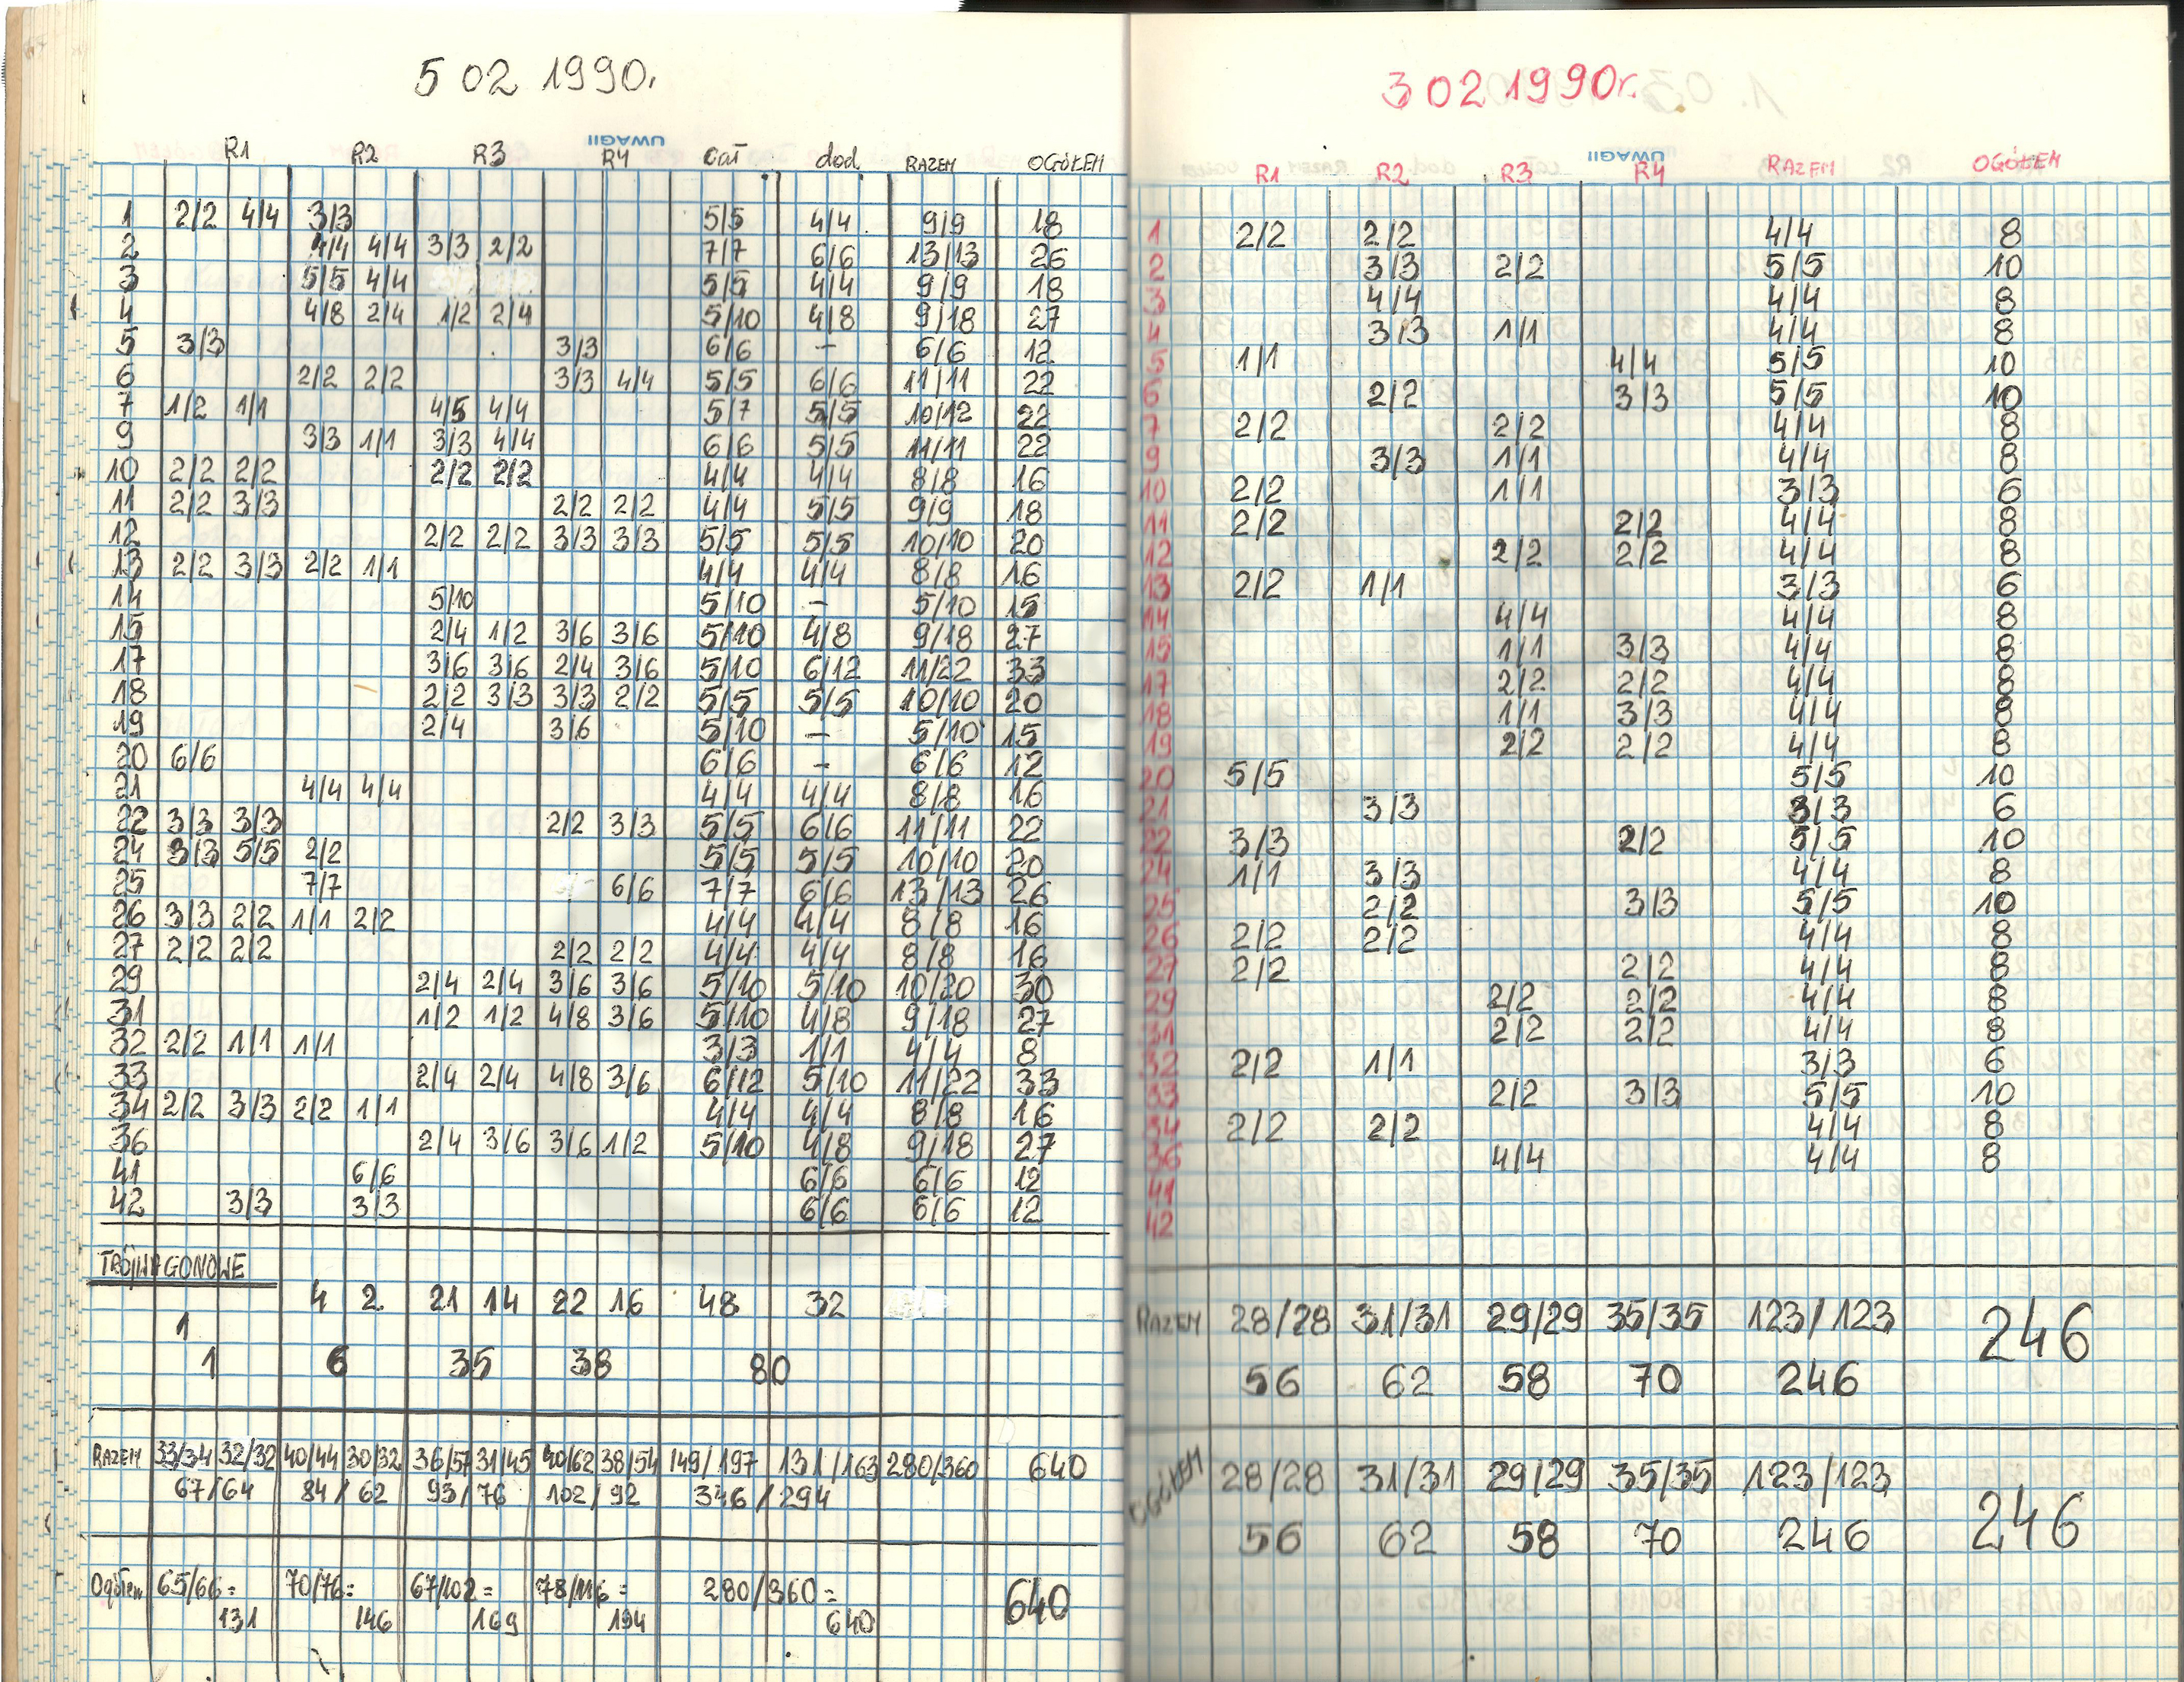 5 02 1990r.
UWAGI
R1 R2 R3 R4 cał. dod. RAZEM OGÓŁEM
1 2/2 4/4 3/3 5/5 4/4 9/9 18
2 4/4 4/4 3/3 2/2 7/7 6/6 13/13 26
3 5/5 4/4 5/5 4/4 9/9 18
4 4/8 2/4 1/2 2/4 5/10 4/8 9/18 27
5 3/3 3/3 6/6 – 6/6 12
6 2/2 2/2 3/3 4/4 5/5 6/6 11/11 22
7 1/2 1/1 4/5 4/4 5/7 5/5 10/12 22
9 3/3 1/1 3/3 4/4 6/6 5/5 11/11 22
10 2/2 2/2 2/2 2/2 4/4 4/4 8/8 16
11 2/2 3/3 2/2 2/2 4/4 5/5 9/9 18
12 2/2 2/2 3/3 3/3 5/5 5/5 10/10 20
13 2/2 3/3 2/2 1/1 4/4 4/4 8/8 16
14 5/10 5/10 – 5/10 15
15 2/4 1/2 3/6 3/6 5/10 4/8 9/18 27
17 3/6 3/6 2/4 3/6 5/10 6/12 11/22 33
18 2/2 3/3 3/3 2/2 5/5 5/5 10/10 20
19 2/4 3/6 5/10 – 5/10 15
20 6/6 6/6 – 6/6 12
21 4/4 4/4 4/4 4/4 8/8 16
22 3/3 3/3 2/2 3/3 5/5 6/6 11/11 22
24 3/3 5/5 2/2 5/5 5/5 10/10 20
25 7/7 6/6 7/7 6/6 13/13 26
26 3/3 2/2 1/1 2/2 4/4 4/4 8/8 16
27 2/2 2/2 2/2 2/2 4/4 4/4 8/8 16
29 2/4 2/4 3/6 3/6 5/10 5/10 10/20 30
31 1/2 1/2 4/8 3/6 5/10 4/8 9/18 27
32 2/2 1/1 1/1 3/3 1/1 4/4 8
33 2/4 2/4 4/8 3/6 6/12 5/10 11/22 33
34 2/2 3/3 2/2 1/1 4/4 4/4 8/8 16
36 2/4 3/6 3/6 1/2 5/10 4/8 9/18 27
41 6/6 6/6 6/6 12
42 3/3 3/3 6/6 6/6 12
TRÓJWAGONOWE
4 2 21 14 22 16 48 32
1
1 6 35 38 80
RAZEM 33/34 32/32 40/44 30/32 36/57 31/45 40/62 38/54 149/197 131/163 280/360 640
67/64 84/62 93/76 102/92 346/294
Ogółem 65/66= 70/76= 67/102= 78/116= 280/360= 640
131 146 169 194 640
3 02 1990r.
UWAGI
R1 R2 R3 R4 RAZEM OGÓŁEM
1 2/2 2/2 4/4 8
2 3/3 2/2 5/5 10
3 4/4 4/4 8
4 3/3 1/1 4/4 8
5 1/1 4/4 5/5 10
6 2/2 3/3 5/5 10
7 2/2 2/2 4/4 8
9 3/3 1/1 4/4 8
10 2/2 1/1 3/3 6
11 2/2 2/2 4/4 8
12 2/2 2/2 4/4 8
13 2/2 1/1 3/3 6
14 4/4 4/4 8
15 1/1 3/3 4/4 8
17 2/2 2/2 4/4 8
18 1/1 3/3 4/4 8
19 2/2 2/2 4/4 8
20 5/5 5/5 10
21 3/3 3/3 6
22 3/3 2/2 5/5 10
24 1/1 3/3 4/4 8
25 2/2 3/3 5/5 10
26 2/2 2/2 4/4 8
27 2/2 2/2 4/4 8
29 2/2 2/2 4/4 8
31 2/2 2/2 4/4 8
32 2/2 1/1 3/3 6
33 2/2 3/3 5/5 10
34 2/2 2/2 4/4 8
36 4/4 4/4 8
41
42
RAZEM 28/28 31/31 29/29 35/35 123/123 246
56 62 58 70 246
OGÓŁEM 28/28 31/31 29/29 35/35 123/123 246
56 62 58 70 246